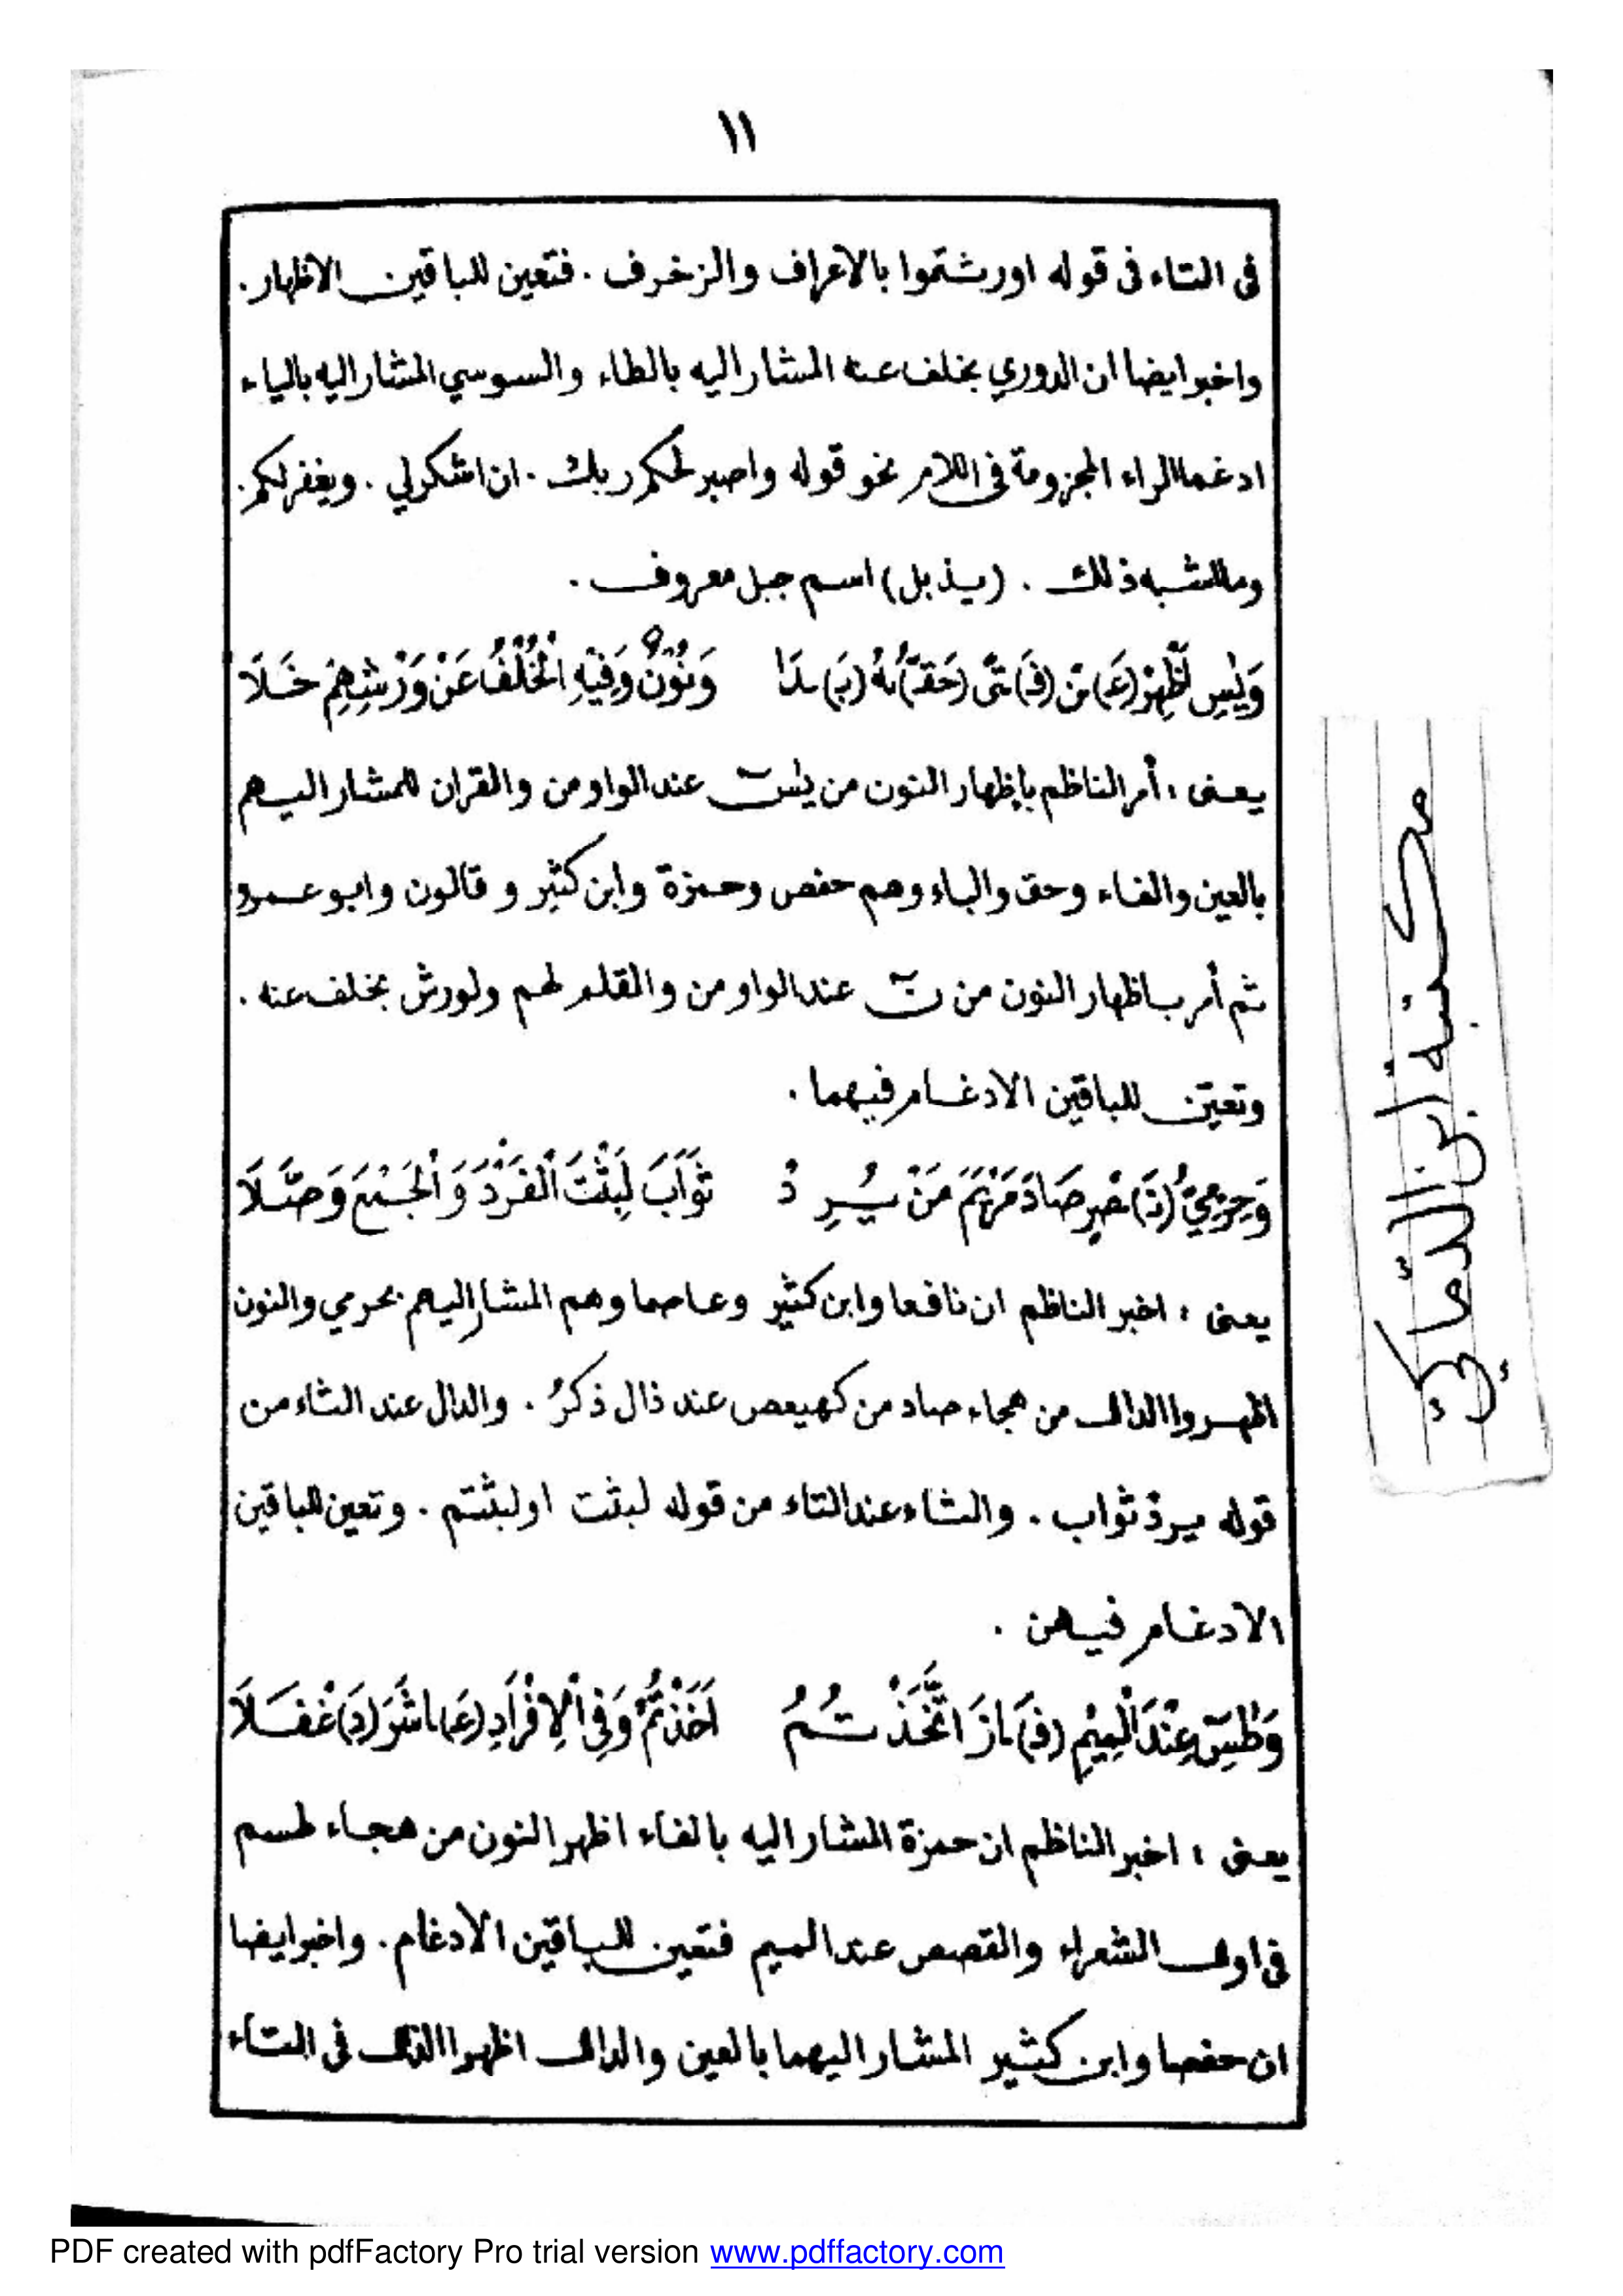 ١١
فى التاء فى قوله اورثتموا بالاعراف والزخرف . فتعين للباقين الاظهار .
واخبر ايضا ان الدوري بخلف عنه المشار اليه بالطاء والسوسي المشار اليه بالياء
ادغما الراء المجزومة فى اللام نحو قوله واصبر لحكم ربك . ان اشكرلي . ويغفرلكم .
وما اشبه ذلك . (يذبل) اسم جبل معروف .
وَيٰسٓ اَظْهِرْ (عَ)نْ (فَ)تًى (حَقُّ)هُ (بَ)دَا وَنُوْنَ وَفِيْهِ الْخُلْفُ عَنْ وَرْشِهِمْ خَلَا
يعنى ، أمر الناظم بإظهار النون من يٰسٓ عند الواو من والقران للمشار اليهم
بالعين والفاء وحق والباء وهم حفص وحمزة وابن كثير و قالون وابو عمرو
ثم أمر باظهار النون من نٓ عند الواو من والقلم لهم ولورش بخلف عنه .
وتعين للباقين الادغام فيهما .
وَحِرْمِيُّ (نَ)صْرٍ صَادَ مَرْيَمَ مَنْ يُرِدْ ثَوَابَ لَبِثْتَ الْفَرْدَ وَالْجَمْعَ وَصَّلَا
يعنى ، اخبر الناظم ان نافعا وابن كثير وعاصما وهم المشار اليهم بحرمي والنون
اظهروا الدال من هجاء صاد من كهيعص عند ذال ذكرُ . والدال عند الثاء من
قوله يردْ ثواب . والثاء عند التاء من قوله لبثت اولبثتم . وتعين للباقين
الادغام فيهن .
وَطٰسٓ عِنْدَ الْمِيْمِ (فَ)ازَ اتَّخَذْتُمُ اَخَذْتُمْ وَفِى الْاِفْرَادِ (عَ)اشَرَ (دَ)غْفَلَا
يعنى ، اخبر الناظم ان حمزة المشار اليه بالفاء اظهر النون من هجاء طسم
فى اولى الشعراء والقصص عند الميم فتعين للباقين الادغام . واخبر ايضا
ان حفصا وابن كثير المشار اليهما بالعين والدال اظهرا الذال فى التاء
مكتبة ابن
PDF created with pdfFactory Pro trial version www.pdffactory.com